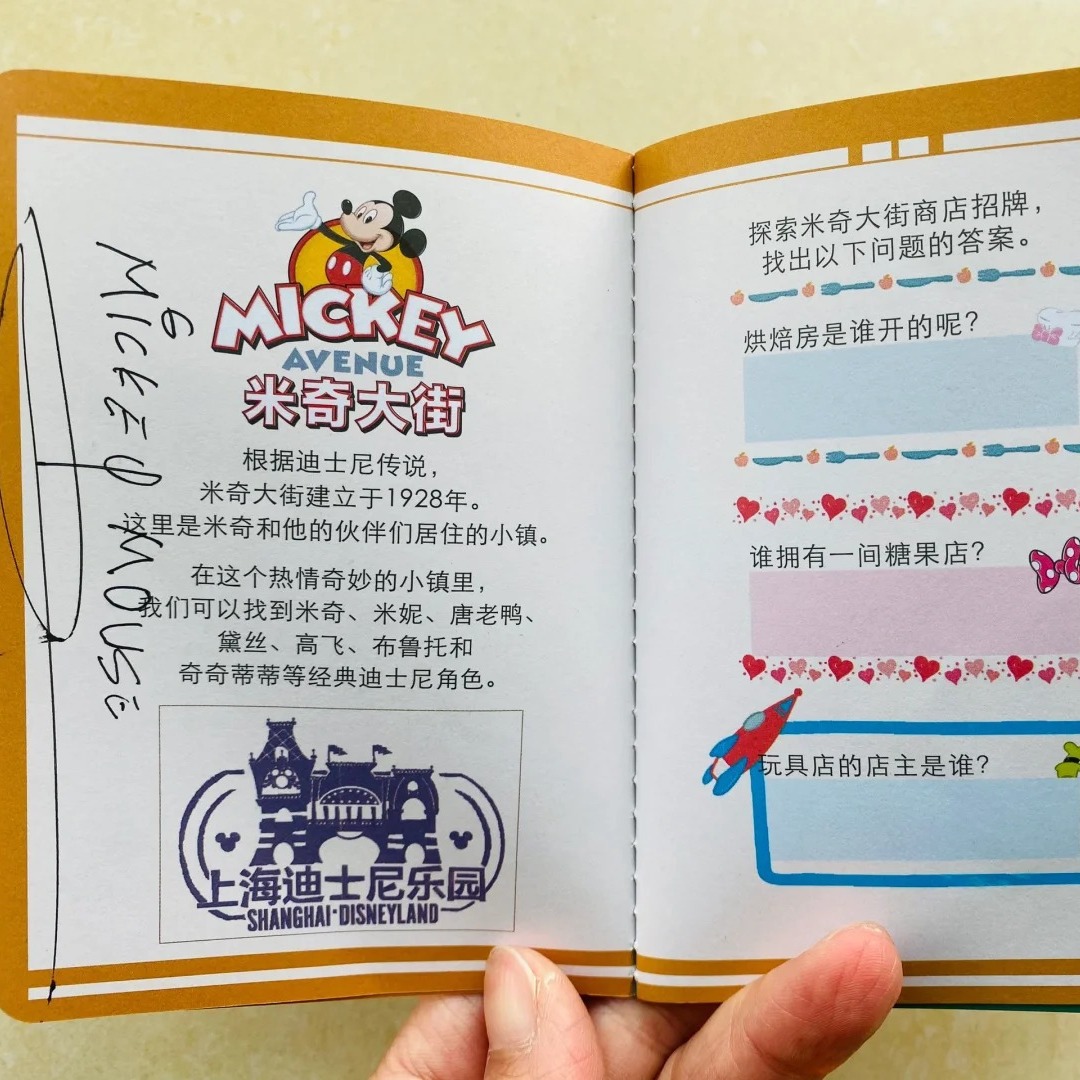 MICKEY
AVENUE
米奇大街
根据迪士尼传说，
米奇大街建立于1928年。
这里是米奇和他的伙伴们居住的小镇。
在这个热情奇妙的小镇里，
我们可以找到米奇、米妮、唐老鸭、
黛丝、高飞、布鲁托和
奇奇蒂蒂等经典迪士尼角色。
上海迪士尼乐园
SHANGHAI·DISNEYLAND
MOUSE
探索米奇大街商店招牌，
找出以下问题的答案。
烘焙房是谁开的呢？
谁拥有一间糖果店？
玩具店的店主是谁？